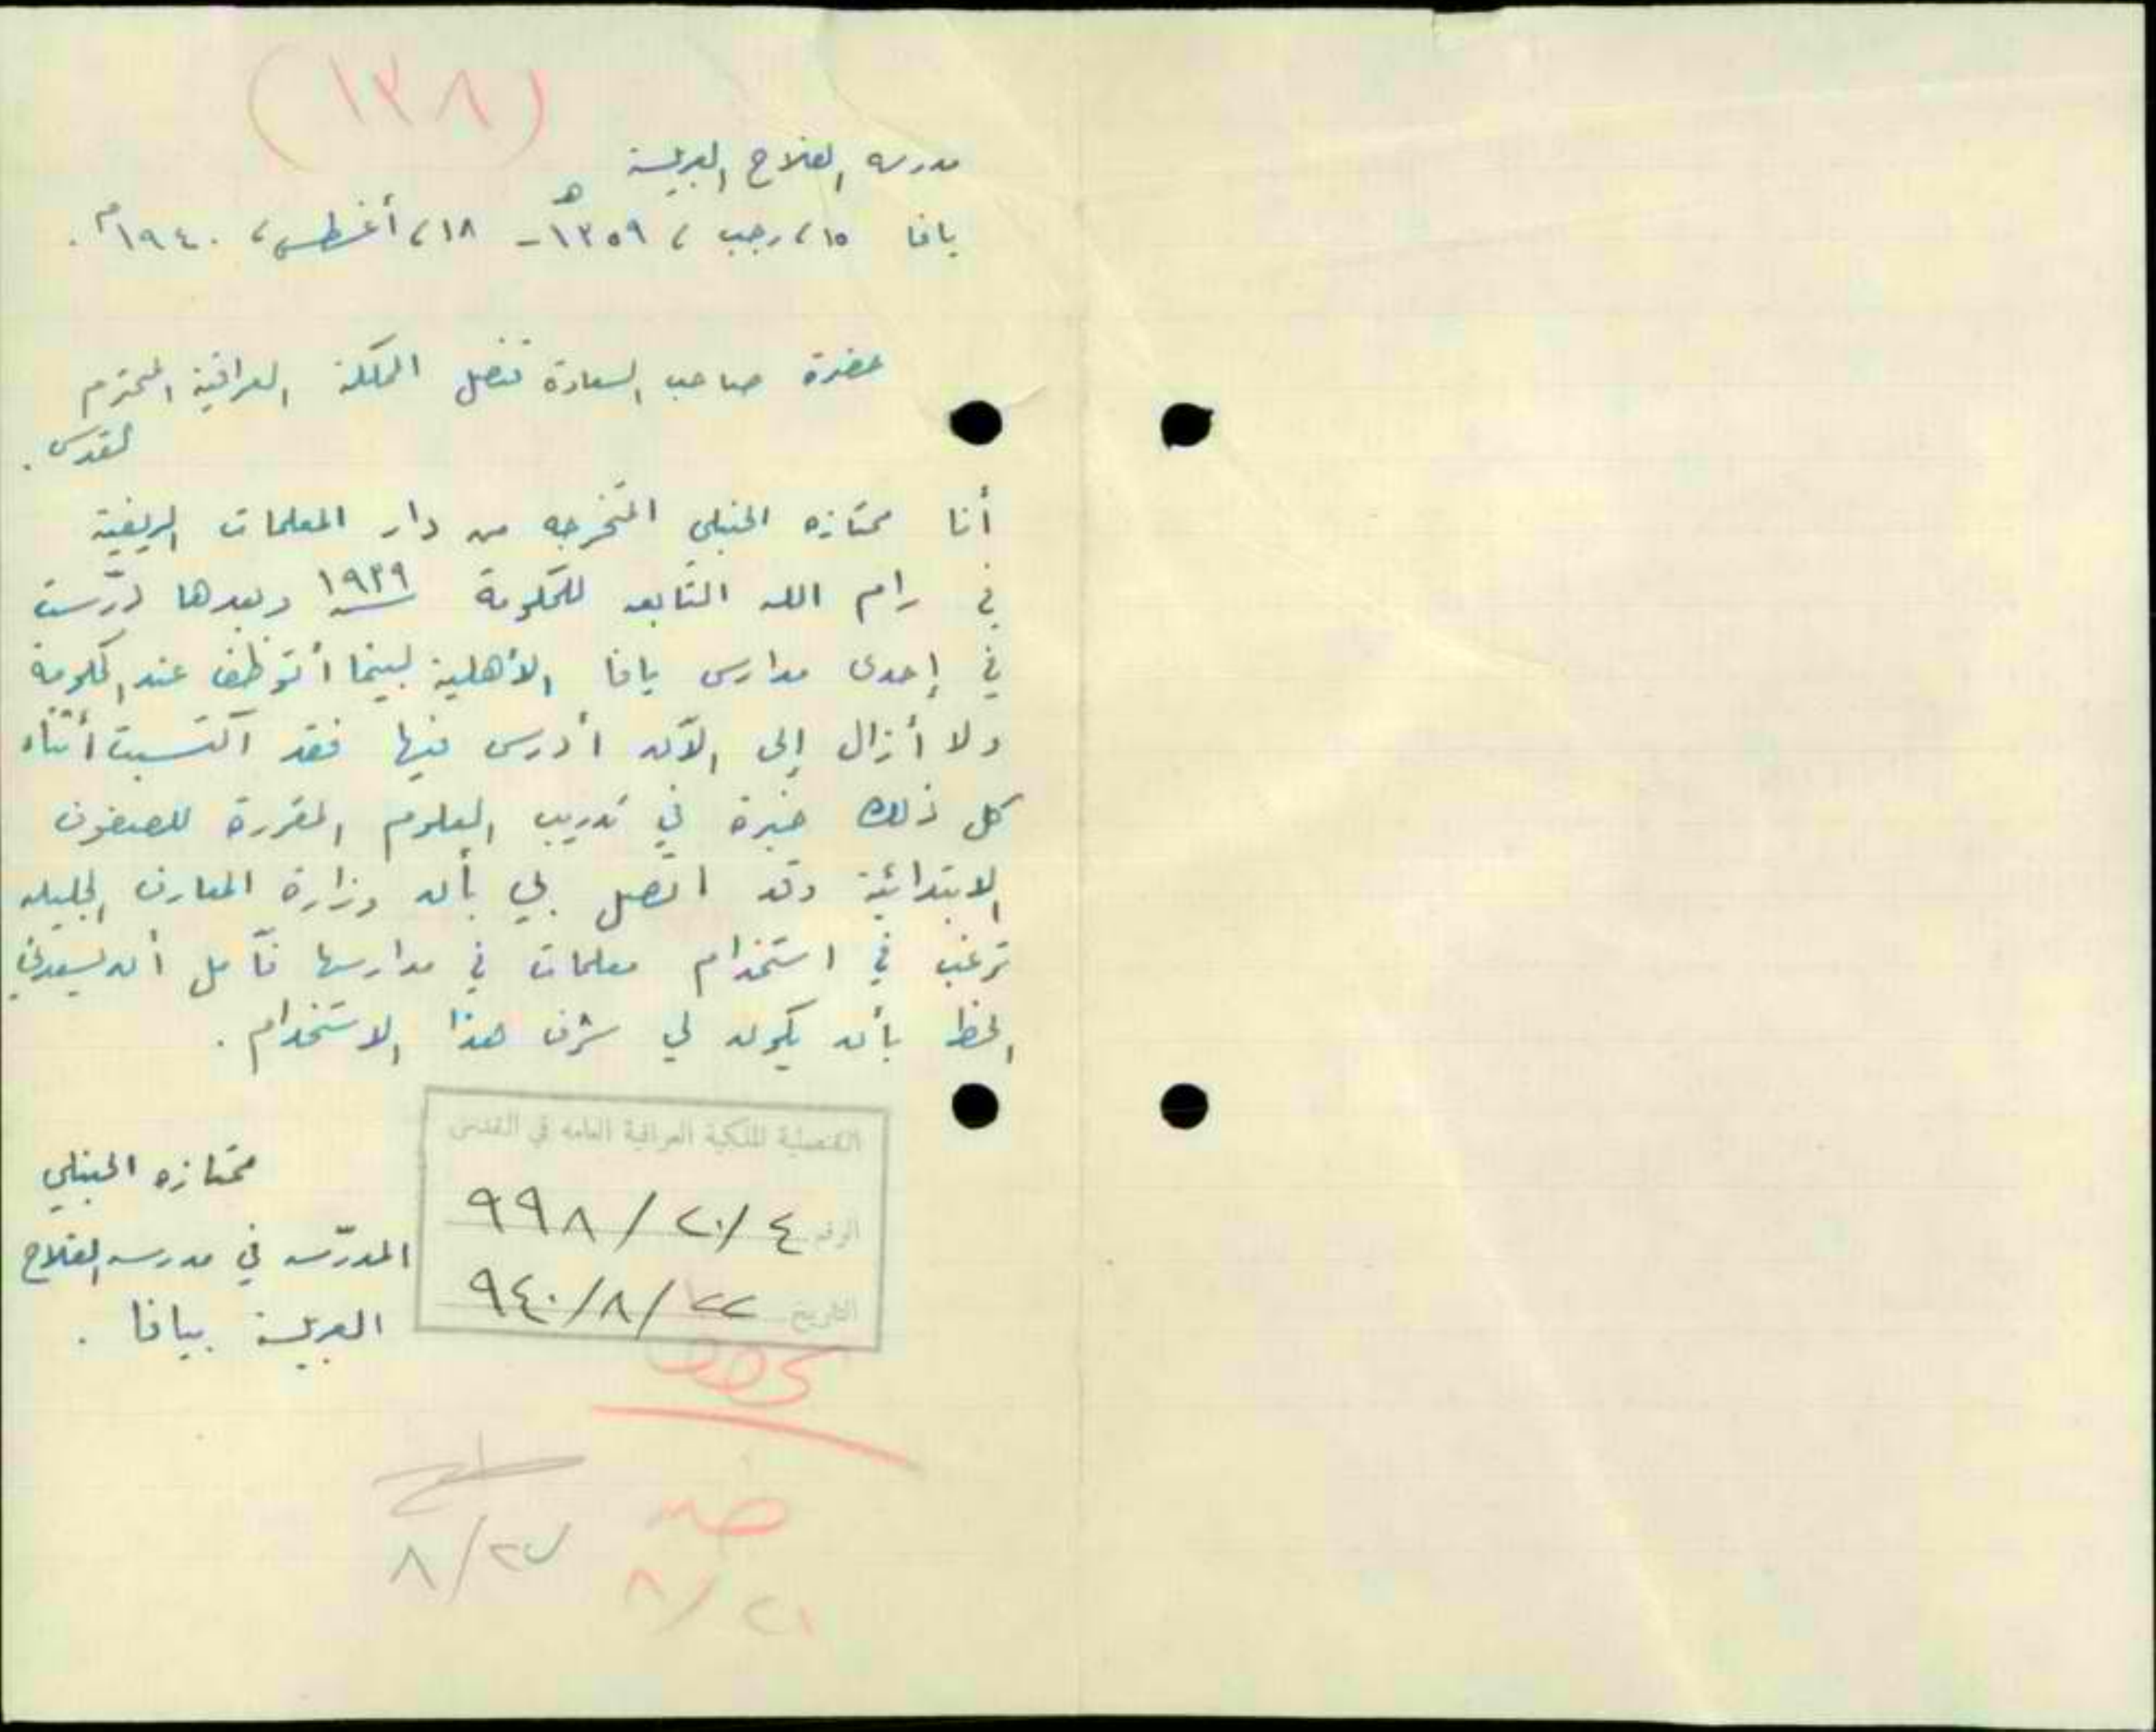 (١٣٨)
مدرسة الفلاح العربية
يافا ١٥، رجب، ١٣٥٩هـ - ١٨، أغسطس، ١٩٤٠م.
حضرة صاحب السعادة قنصل المملكة العراقية المحترم
القدس.
أنا ممتازه الحنبلي المتخرجه من دار المعلمات الريفية
في رام الله التابعه للحكومة سنة ١٩٣٩ وبعدها درّست
في إحدى مدارس يافا الأهلية لبينما أتوظف عند الحكومة
ولا أزال إلى الآن أدرس فيها فقد اكتسبت أثناء
كل ذلك خبرة في تدريب العلوم المقررة للصفوف
الابتدائية وقد اتصل بي بأن وزارة المعارف الجليله
ترغب في استخدام معلمات في مدارسها فآمل أن يسعدني
الحظ بأن يكون لي شرف هذا الاستخدام.
القنصلية الملكية العراقية العامة في القدس
الرقم ٩٩٨/٢٠/٤
التاريخ ٩٤٠/٨/٢٢
ممتازه الحنبلي
المدرّسه في مدرسه الفلاح
العربية بيافا.
٨/٢٧
٨/٢١